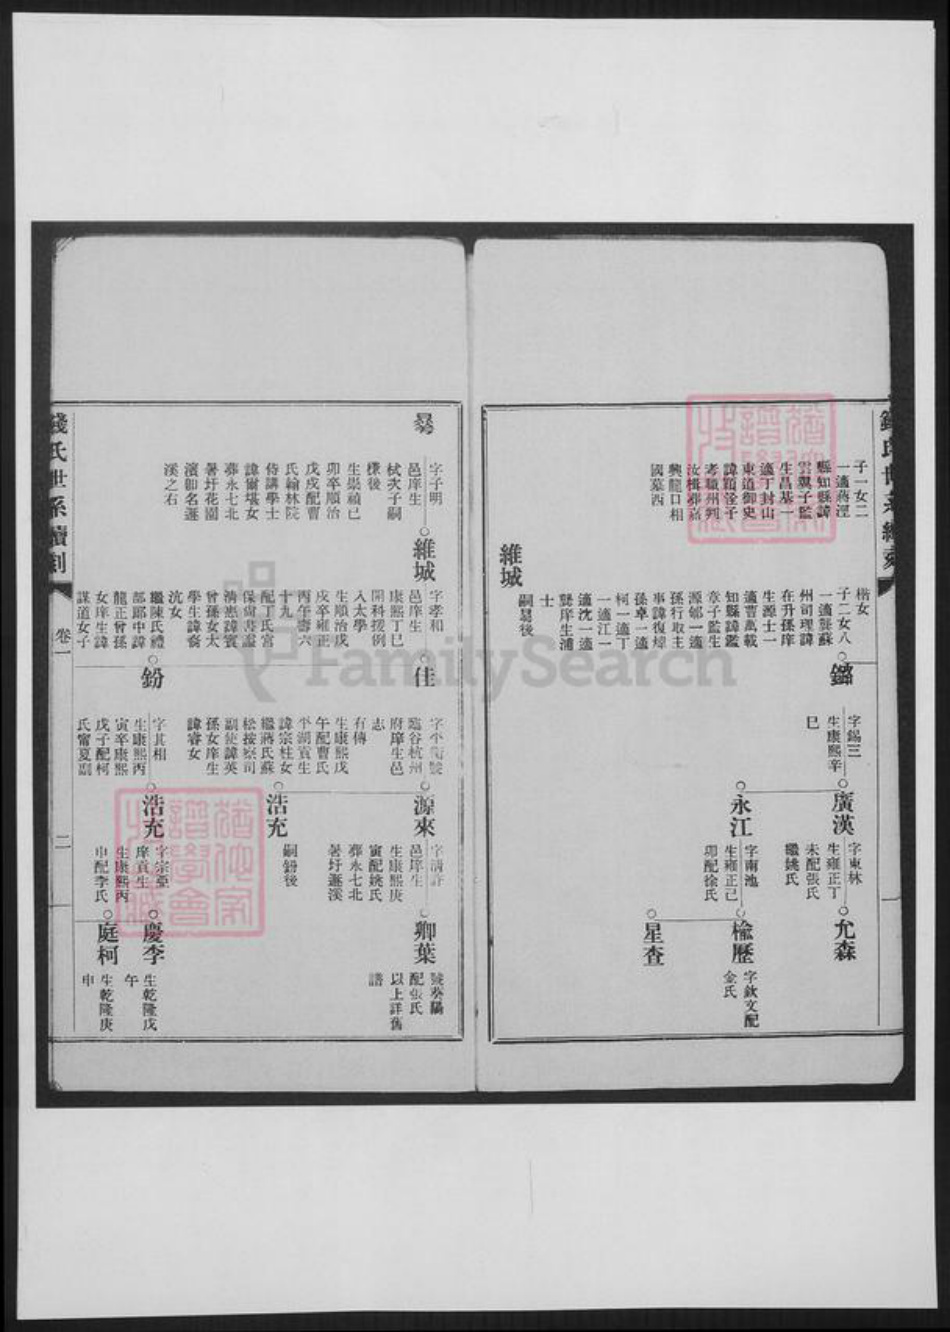 錢氏世系續刻
子一女二
一適蔣涇
縣知縣諱
雲翼子監
生昌基一
適于封山
東道御史
諱穎淦子
孝職州判
汝楫葬嘉
興龍口相
國墓西
維城
楷女
子二女八
一適龔蘇
州司理諱
在升孫庠
生源士一
適曹萬載
知縣諱鑑
章子監生
源郇一適
孫行取主
事諱復煒
孫卓一適
柯一適丁
一適江一
適沈一適
龔庠生浦
士
嗣昜後
鏴
字錫三
生康熙辛
巳
廣漢
字東林
生雍正丁
未配張氏
繼姚氏
允森
永江
字南池
生雍正己
卯配徐氏
榆歷
字欽文配
金氏
星查
字子明
邑庠生
栻次子嗣
樸後
生崇禎己
卯卒順治
戊戌配曹
氏翰林院
侍講學士
諱爾堪女
葬永七北
署圩花園
濱卽名遯
溪之右
維城
字孝和
邑庠生
康熙丁巳
開科援例
入太學
生順治戊
戌卒雍正
丙午壽六
十九
配丁氏宮
保尚書諡
清惠諱賓
曾孫女太
學生諱裔
沆女
繼陳氏禮
部郎中諱
龍正曾孫
女庠生諱
謀道女子
佳
字平衡號
臨谷杭州
府庠生邑
志
有傳
生康熙戊
午配曹氏
平湖貢生
諱宗柱女
繼蔣氏蘇
松按察司
副使諱英
孫女庠生
諱睿女
鈖
字其相
生康熙丙
寅卒康熙
戊子配柯
氏甯夏副
源來
字清許
邑庠生
生康熙庚
寅配姚氏
葬永七北
署圩遯溪
浩充
嗣鈖後
浩充
字宗亞
庠貢生
生康熙丙
申配李氏
卿葉
號葵陽
配張氏
以上詳舊
譜
慶李
生乾隆戊
午
庭柯
生乾隆庚
申
錢氏世系續刻
卷一
二
FamilySearch